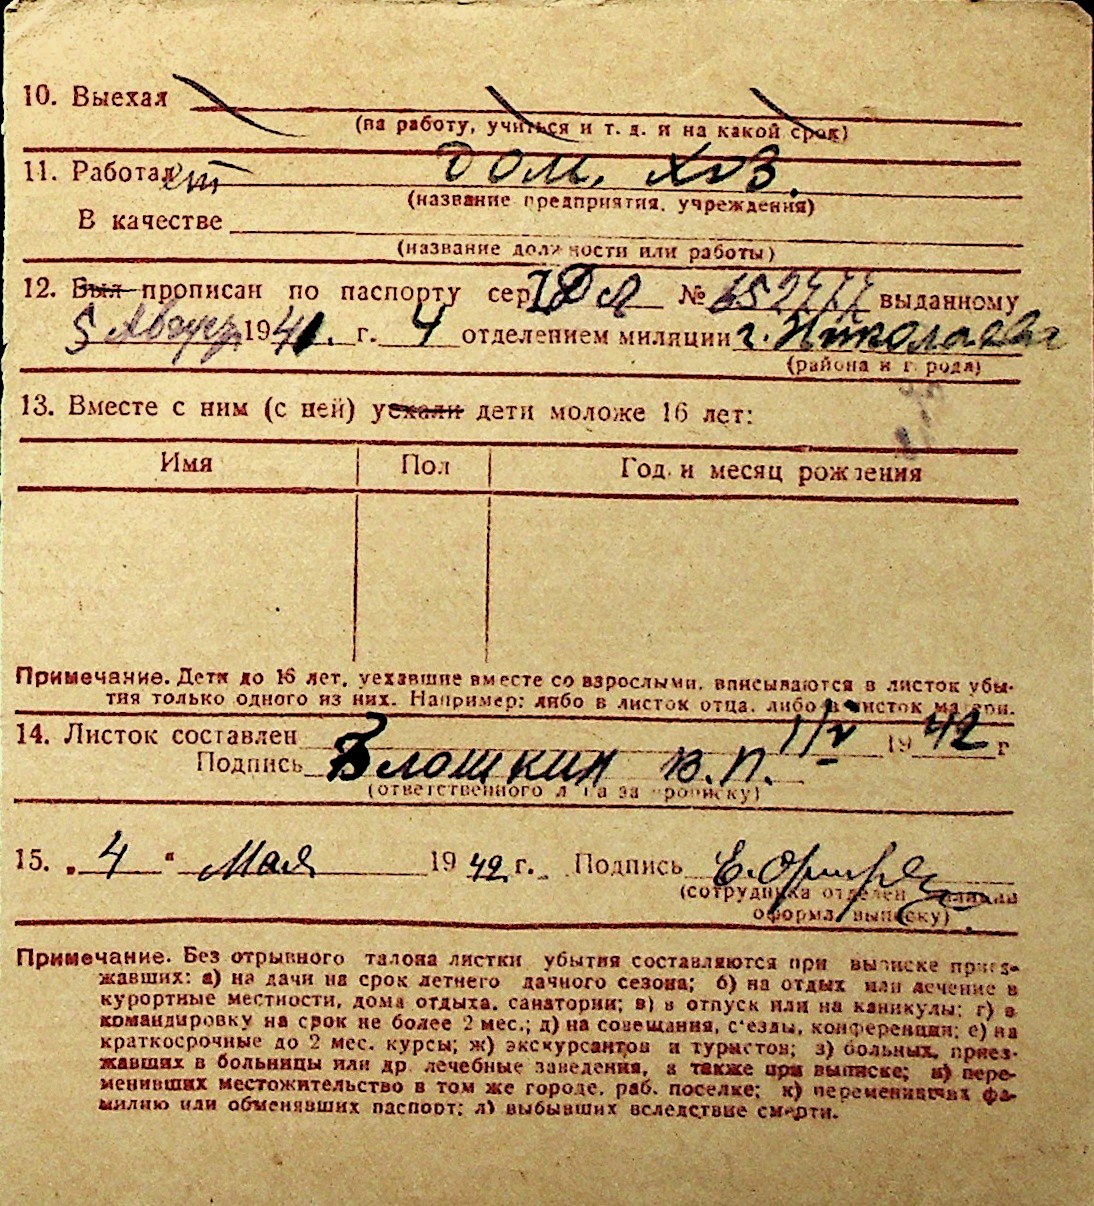 10. Выехал
(на работу, учиться и т. д. и на какой срок)
11. Работает дом. хоз.
(название предприятия, учреждения)
В качестве
(название должности или работы)
12. Был прописан по паспорту сер. № выданному
5 Август 1941. г. 4 отделением милиции г. Николаева
(района и города)
13. Вместе с ним (с ней) уехали дети моложе 16 лет:
Имя Пол Год и месяц рождения
Примечание. Дети до 16 лет, уехавшие вместе со взрослыми, вписываются в листок убы-
тия только одного из них. Например: либо в листок отца, либо в листок матери.
14. Листок составлен 1/V 1942 г
Подпись Блошкин В.П.
(ответственного лица за прописку)
15. „4“ Мая 1942 г. Подпись
(сотрудника отделен милиции
оформл. выписку)
Примечание. Без отрывного талона листки убытия составляются при выписке приез-
жавших: а) на дачи на срок летнего дачного сезона; б) на отдых или лечение в
курортные местности, дома отдыха, санатории; в) в отпуск или на каникулы; г) в
командировку на срок не более 2 мес.; д) на совещания, с'езды, конференции; е) на
краткосрочные до 2 мес. курсы; ж) экскурсантов и туристов; з) больных, приез-
жавших в больницы или др. лечебные заведения, а также при выписке; и) пере-
менивших местожительство в том же городе, раб. поселке; к) переменивших фа-
милию или обменявших паспорт; л) выбывших вследствие смерти.